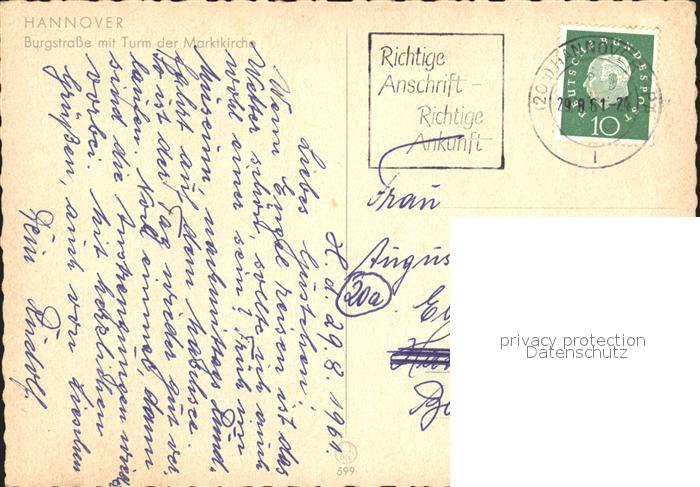 HANNOVER
Burgstraße mit Turm der Marktkirche
Richtige
Anschrift –
Richtige
Ankunft
(20a) HANNOVER
29.8.61-20
1
DEUTSCHE BUNDESPOST
10
H. d. 29. 8. 1961.
Liebes Gustchen!
Wenn Engel reisen ist das
Wetter schön, sollte ich auch
wohl einer sein? Früh im
Museum, nachmittags Rund-
fahrt auf dem
So ist der Tag wieder gut ver-
laufen. Noch einmal, dann
sind die Anstrengungen
vorbei. Mit herzlichen
Grüßen, auch von Lieschen
Dein Rudolf.
Frau
Augus
20a
599
privacy protection
Datenschutz